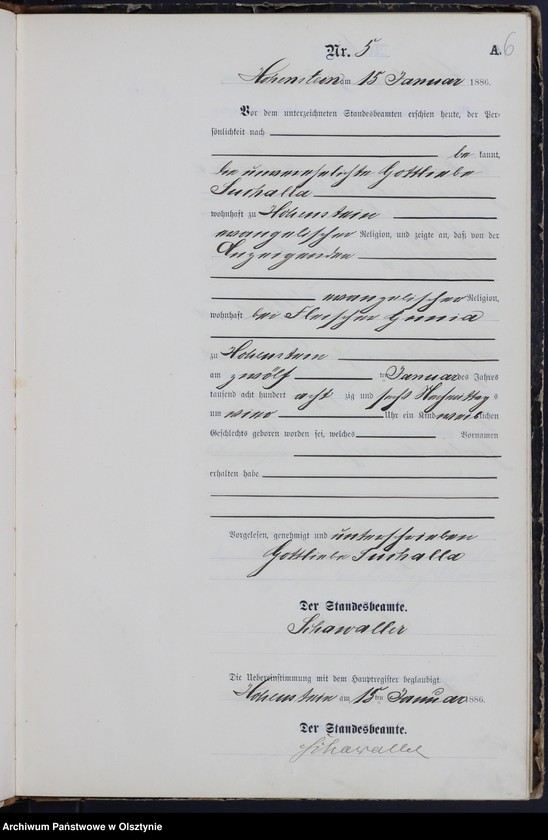 Nr. 5
A. 6
Hohenstein am 15 Januar 1886.
Vor dem unterzeichneten Standesbeamten erschien heute, der Per-
sönlichkeit nach
be kannt,
die unverehelichte Gottliebe
Suchalla
wohnhaft zu Hohenstein
evangelischer Religion, und zeigte an, daß von der
Anzeigenden
evangelischer Religion,
wohnhaft bei Fleischer
zu Hohenstein
am zwölf ten Januar des Jahres
tausend acht hundert acht zig und sechs Nachmittag s
um Uhr ein Kind weiblichen
Geschlechts geboren worden sei, welches Vornamen
erhalten habe
Vorgelesen, genehmigt und unterschrieben
Gottliebe Suchalla
Der Standesbeamte.
Schawaller
Die Uebereinstimmung mit dem Hauptregister beglaubigt
Hohenstein am 15ten Januar 1886.
Der Standesbeamte.
Schawaller
Archiwum Państwowe w Olsztynie